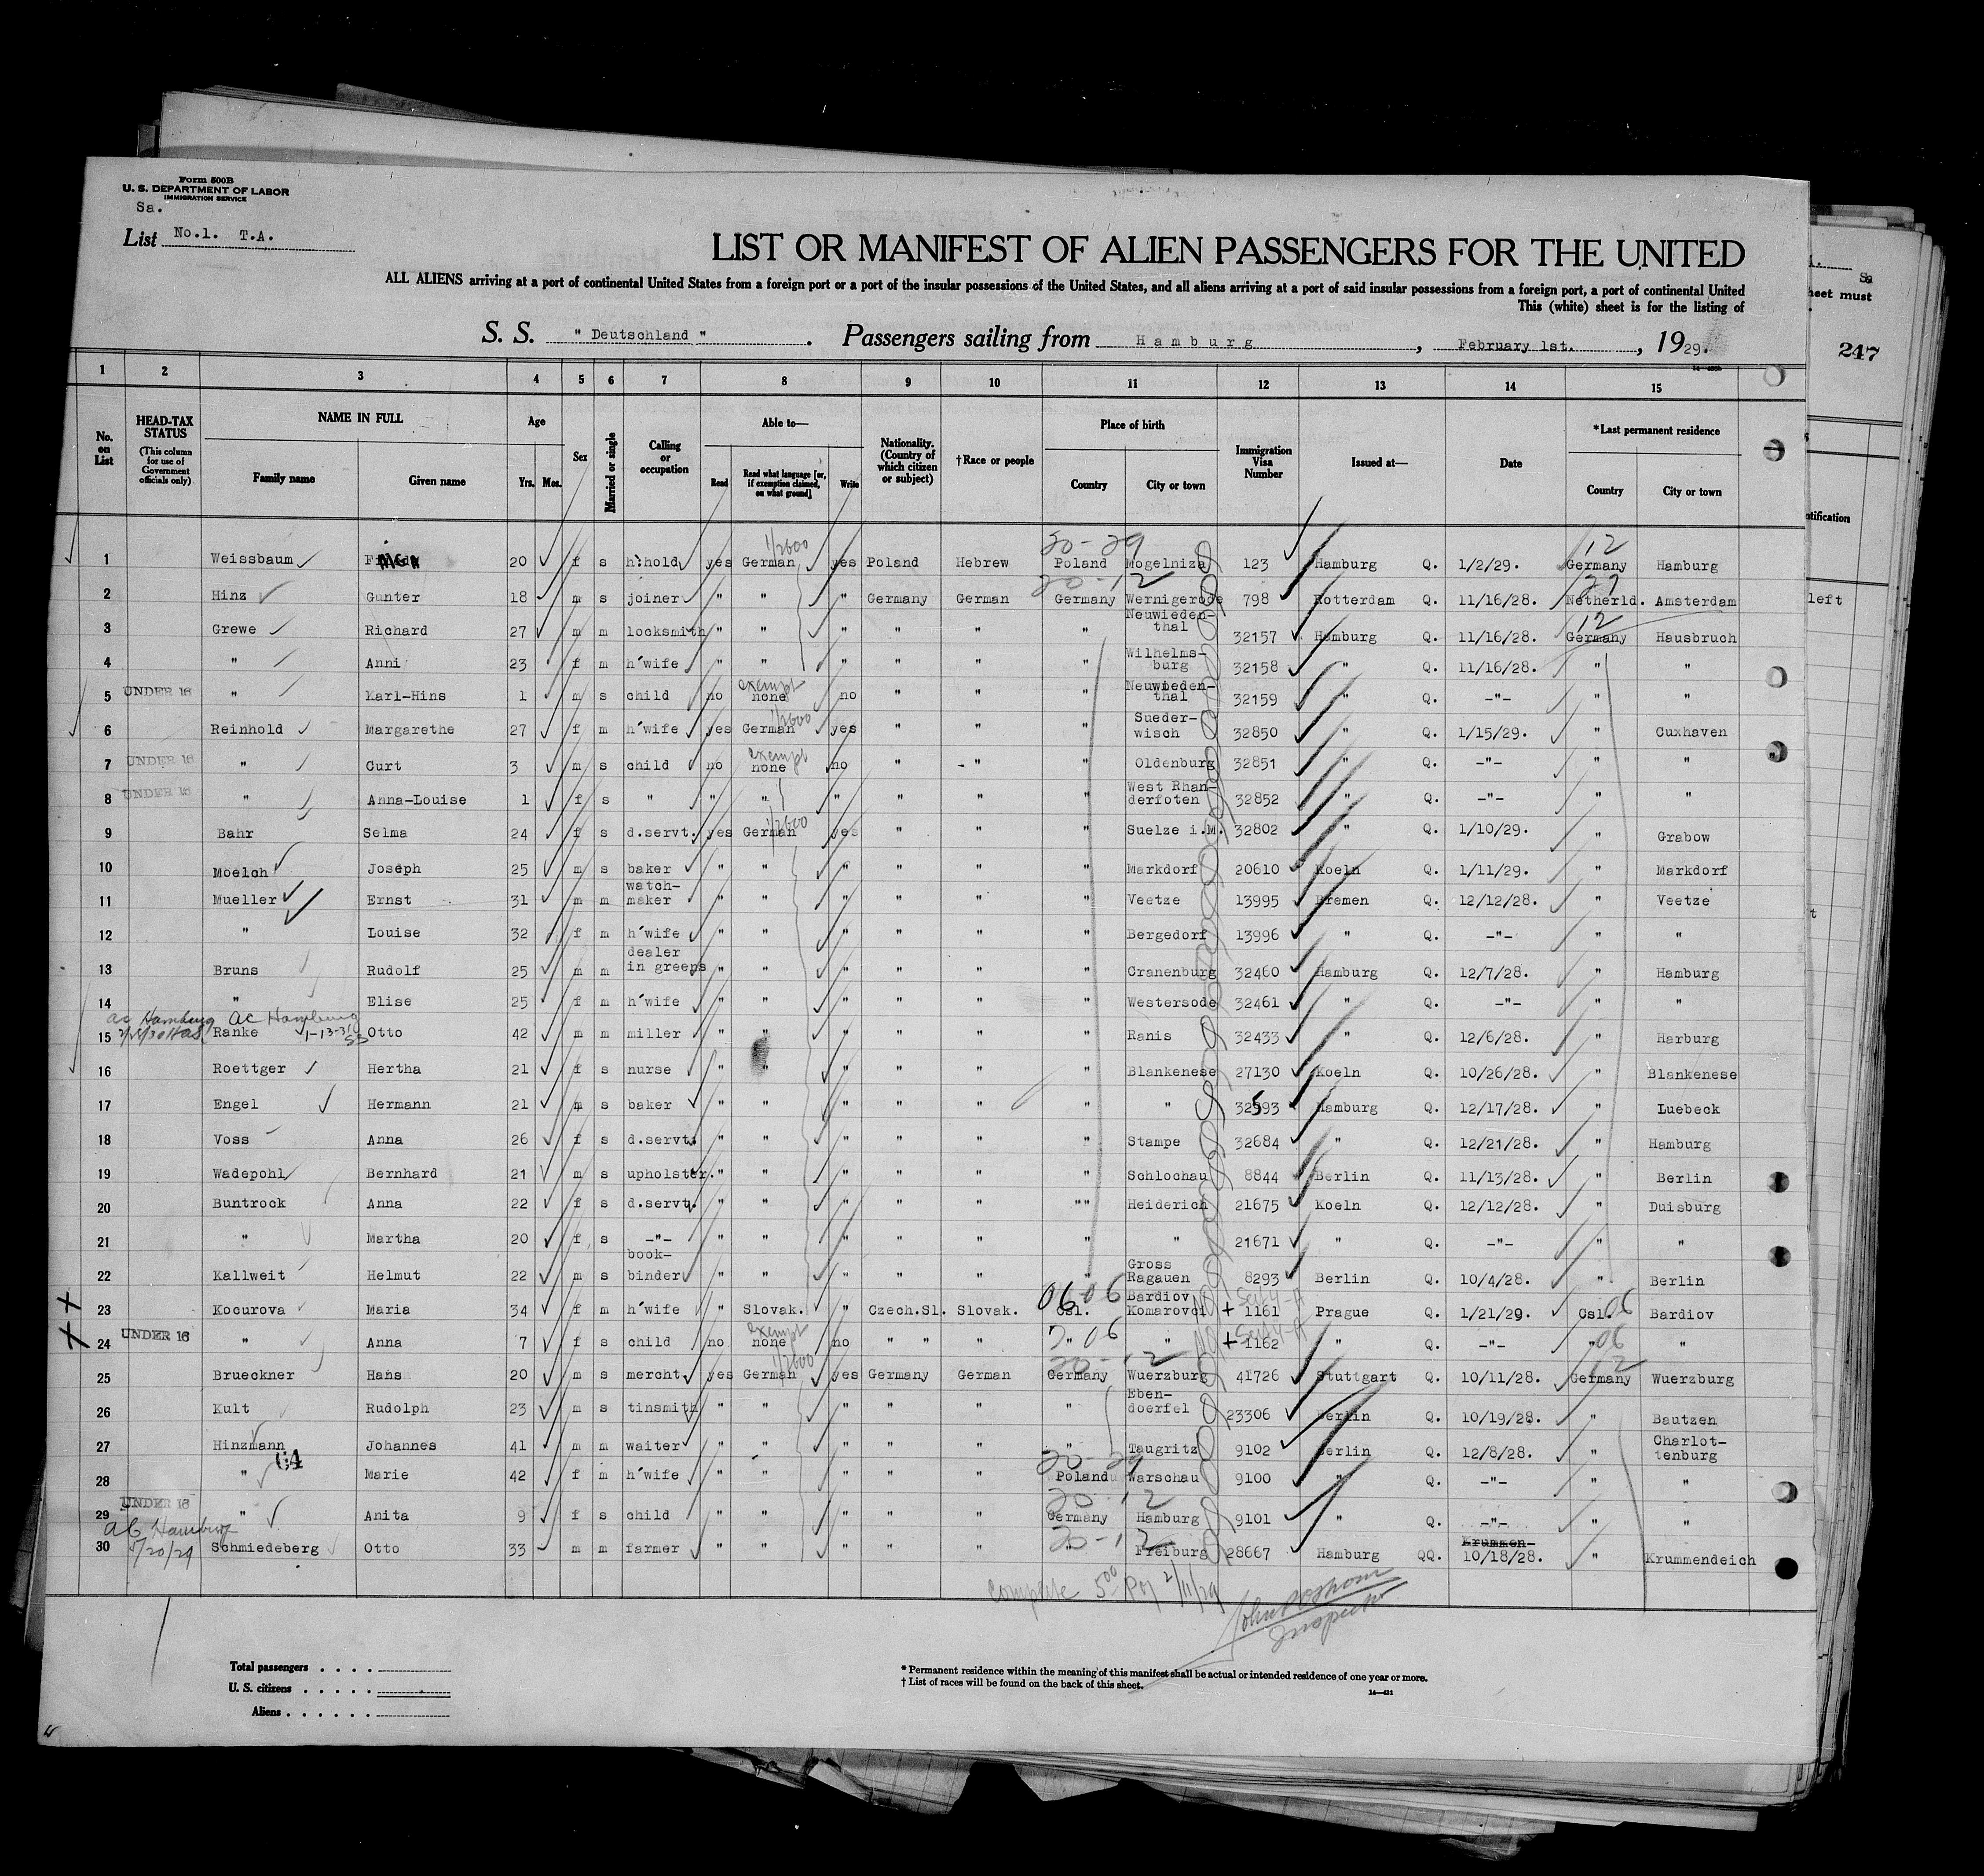 Form 500B
U. S. DEPARTMENT OF LABOR
IMMIGRATION SERVICE
Sa.
List No.1. T.A.
LIST OR MANIFEST OF ALIEN PASSENGERS FOR THE UNITED
ALL ALIENS arriving at a port of continental United States from a foreign port or a port of the insular possessions of the United States, and all aliens arriving at a port of said insular possessions from a foreign port, a port of continental United
This (white) sheet is for the listing of
S. S. " Deutschland " . Passengers sailing from Hamburg , February 1st. , 1929.
1 2 3 4 5 6 7 8 9 10 11 12 13 14 15
No. on List
HEAD-TAX STATUS
(This column for use of Government officials only)
NAME IN FULL
Family name Given name
Age
Yrs. Mos.
Sex
Married or single
Calling or occupation
Able to—
Read Read what language [or, if exemption claimed, on what ground] Write
Nationality. (Country of which citizen or subject)
†Race or people
Place of birth
Country City or town
Immigration Visa Number
Issued at—
Date
*Last permanent residence
Country City or town
1 Weissbaum 20 f s h'hold yes German yes Poland Hebrew Poland Mogelniza 123 Hamburg Q. 1/2/29. Germany Hamburg
2 Hinz Gunter 18 m s joiner " " " Germany German Germany Wernigerode 798 Rotterdam Q. 11/16/28. Netherld. Amsterdam
3 Grewe Richard 27 m m locksmith " " " " " " Neuwieden-thal 32157 Hamburg Q. 11/16/28. Germany Hausbruch
4 " Anni 23 f m h'wife " " " " " " Wilhelms-burg 32158 " Q. 11/16/28. " "
5 UNDER 16 " Karl-Hins 1 m s child no exempt none no " " " Neuwieden-thal 32159 " Q. -"- " "
6 Reinhold Margarethe 27 f m h'wife yes German yes " " " Sueder-wisch 32850 " Q. 1/15/29. " Cuxhaven
7 UNDER 16 " Curt 3 m s child no exempt none no " -" " Oldenburg 32851 " Q. -"- " "
8 UNDER 16 " Anna-Louise 1 f s " " " " " " " West Rhan-derfoten 32852 " Q. -"- " "
9 Bahr Selma 24 f s d.servt. yes German yes " " " Suelze i.M. 32802 " Q. 1/10/29. " Grabow
10 Moelch Joseph 25 m s baker " " " " " " Markdorf 20610 Koeln Q. 1/11/29. " Markdorf
11 Mueller Ernst 31 m m watch-maker " " " " " " Veetze 13995 Bremen Q. 12/12/28. " Veetze
12 " Louise 32 f m h'wife " " " " " " Bergedorf 13996 Q. -"- " "
13 Bruns Rudolf 25 m m dealer in greens " " " " " " Cranenburg 32460 Hamburg Q. 12/7/28. " Hamburg
14 " Elise 25 f m h'wife " " " " " " Westersode 32461 " Q. -"- " "
ac Hamburg ac Hamburg
15 Ranke 1-13-31 Otto 42 m m miller " " " " " " Ranis 32433 " Q. 12/6/28. " Harburg
16 Roettger Hertha 21 f s nurse " " " " " " Blankenese 27130 Koeln Q. 10/26/28. " Blankenese
17 Engel Hermann 21 m s baker " " " " " " " 32593 Hamburg Q. 12/17/28. " Luebeck
18 Voss Anna 26 f s d.servt. " " " " " " Stampe 32684 " Q. 12/21/28. " Hamburg
19 Wadepohl Bernhard 21 m s upholster. " " " " " " Schlochau 8844 Berlin Q. 11/13/28. " Berlin
20 Buntrock Anna 22 f s d.servt. " " " " " "" Heiderich 21675 Koeln Q. 12/12/28. " Duisburg
21 " Martha 20 f s -"- " " " " " " 21671 " Q. -"- " "
22 Kallweit Helmut 22 m s book-binder " " " " " " Gross Ragauen 8293 Berlin Q. 10/4/28. " Berlin
23 Kocurova Maria 34 f m h'wife " Slovak. " Czech.Sl. Slovak. Csl. Bardiov Komarovci 1161 Prague Q. 1/21/29. Csl. Bardiov
24 UNDER 16 " Anna 7 f s child no exempt none no " " " " " 1162 " Q. -"- " "
25 Brueckner Hans 20 m s mercht. yes German yes Germany German Germany Wuerzburg 41726 Stuttgart Q. 10/11/28. Germany Wuerzburg
26 Kult Rudolph 23 m s tinsmith " " " " " " Eben-doerfel 23306 Berlin Q. 10/19/28. " Bautzen
27 Hinzmann Johannes 41 m m waiter " " " " " " Taugritz 9102 Berlin Q. 12/8/28. " Charlot-tenburg
28 " Marie 42 f m h'wife " " " " " Poland Warschau 9100 " Q. -"- " "
29 UNDER 16 " Anita 9 f s child " " " " " Germany Hamburg 9101 " Q. -"- " "
ac Hamburg
30 5/20/29 Schmiedeberg Otto 33 m m farmer " " " " " " Freiburg 28667 Hamburg QQ. Krummen- 10/18/28. " Krummendeich
Complete 2/11/29
Inspector
Total passengers . . . .
U. S. citizens . . . . .
Aliens . . . . . .
* Permanent residence within the meaning of this manifest shall be actual or intended residence of one year or more.
† List of races will be found on the back of this sheet.
14—431
Sa
heet must
247
ntification
left